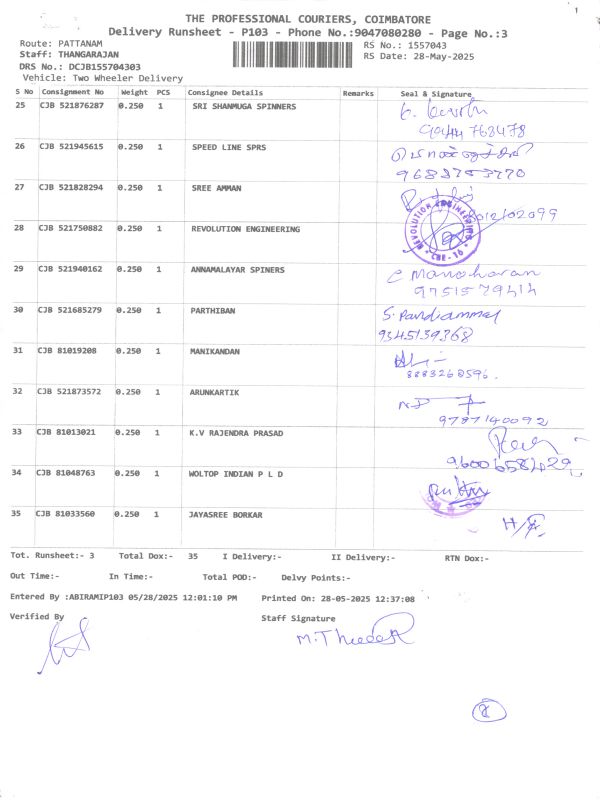 1
THE PROFESSIONAL COURIERS, COIMBATORE
Delivery Runsheet - P103 - Phone No.:9047080280 - Page No.:3
Route: PATTANAM
RS No.: 1557043
Staff: THANGARAJAN
RS Date: 28-May-2025
DRS No.: DCJB155704303
Vehicle: Two Wheeler Delivery
S No Consignment No Weight PCS Consignee Details Remarks Seal & Signature
25 CJB 521876287 0.250 1 SRI SHANMUGA SPINNERS
26 CJB 521945615 0.250 1 SPEED LINE SPRS
27 CJB 521828294 0.250 1 SREE AMMAN
28 CJB 521750882 0.250 1 REVOLUTION ENGINEERING
REVOLUTION ENGINEERING CBE-16
29 CJB 521940162 0.250 1 ANNAMALAYAR SPINERS C Manoharan
9751579414
30 CJB 521685279 0.250 1 PARTHIBAN S. Pandiammal
9345139368
31 CJB 81019208 0.250 1 MANIKANDAN
8883260596.
32 CJB 521873572 0.250 1 ARUNKARTIK
9787140092
33 CJB 81013021 0.250 1 K.V RAJENDRA PRASAD
9600658429
34 CJB 81048763 0.250 1 WOLTOP INDIAN P L D
35 CJB 81033560 0.250 1 JAYASREE BORKAR
Tot. Runsheet:- 3 Total Dox:- 35 I Delivery:- II Delivery:- RTN Dox:-
Out Time:- In Time:- Total POD:- Delvy Points:-
Entered By :ABIRAMIP103 05/28/2025 12:01:10 PM Printed On: 28-05-2025 12:37:08
Verified By Staff Signature